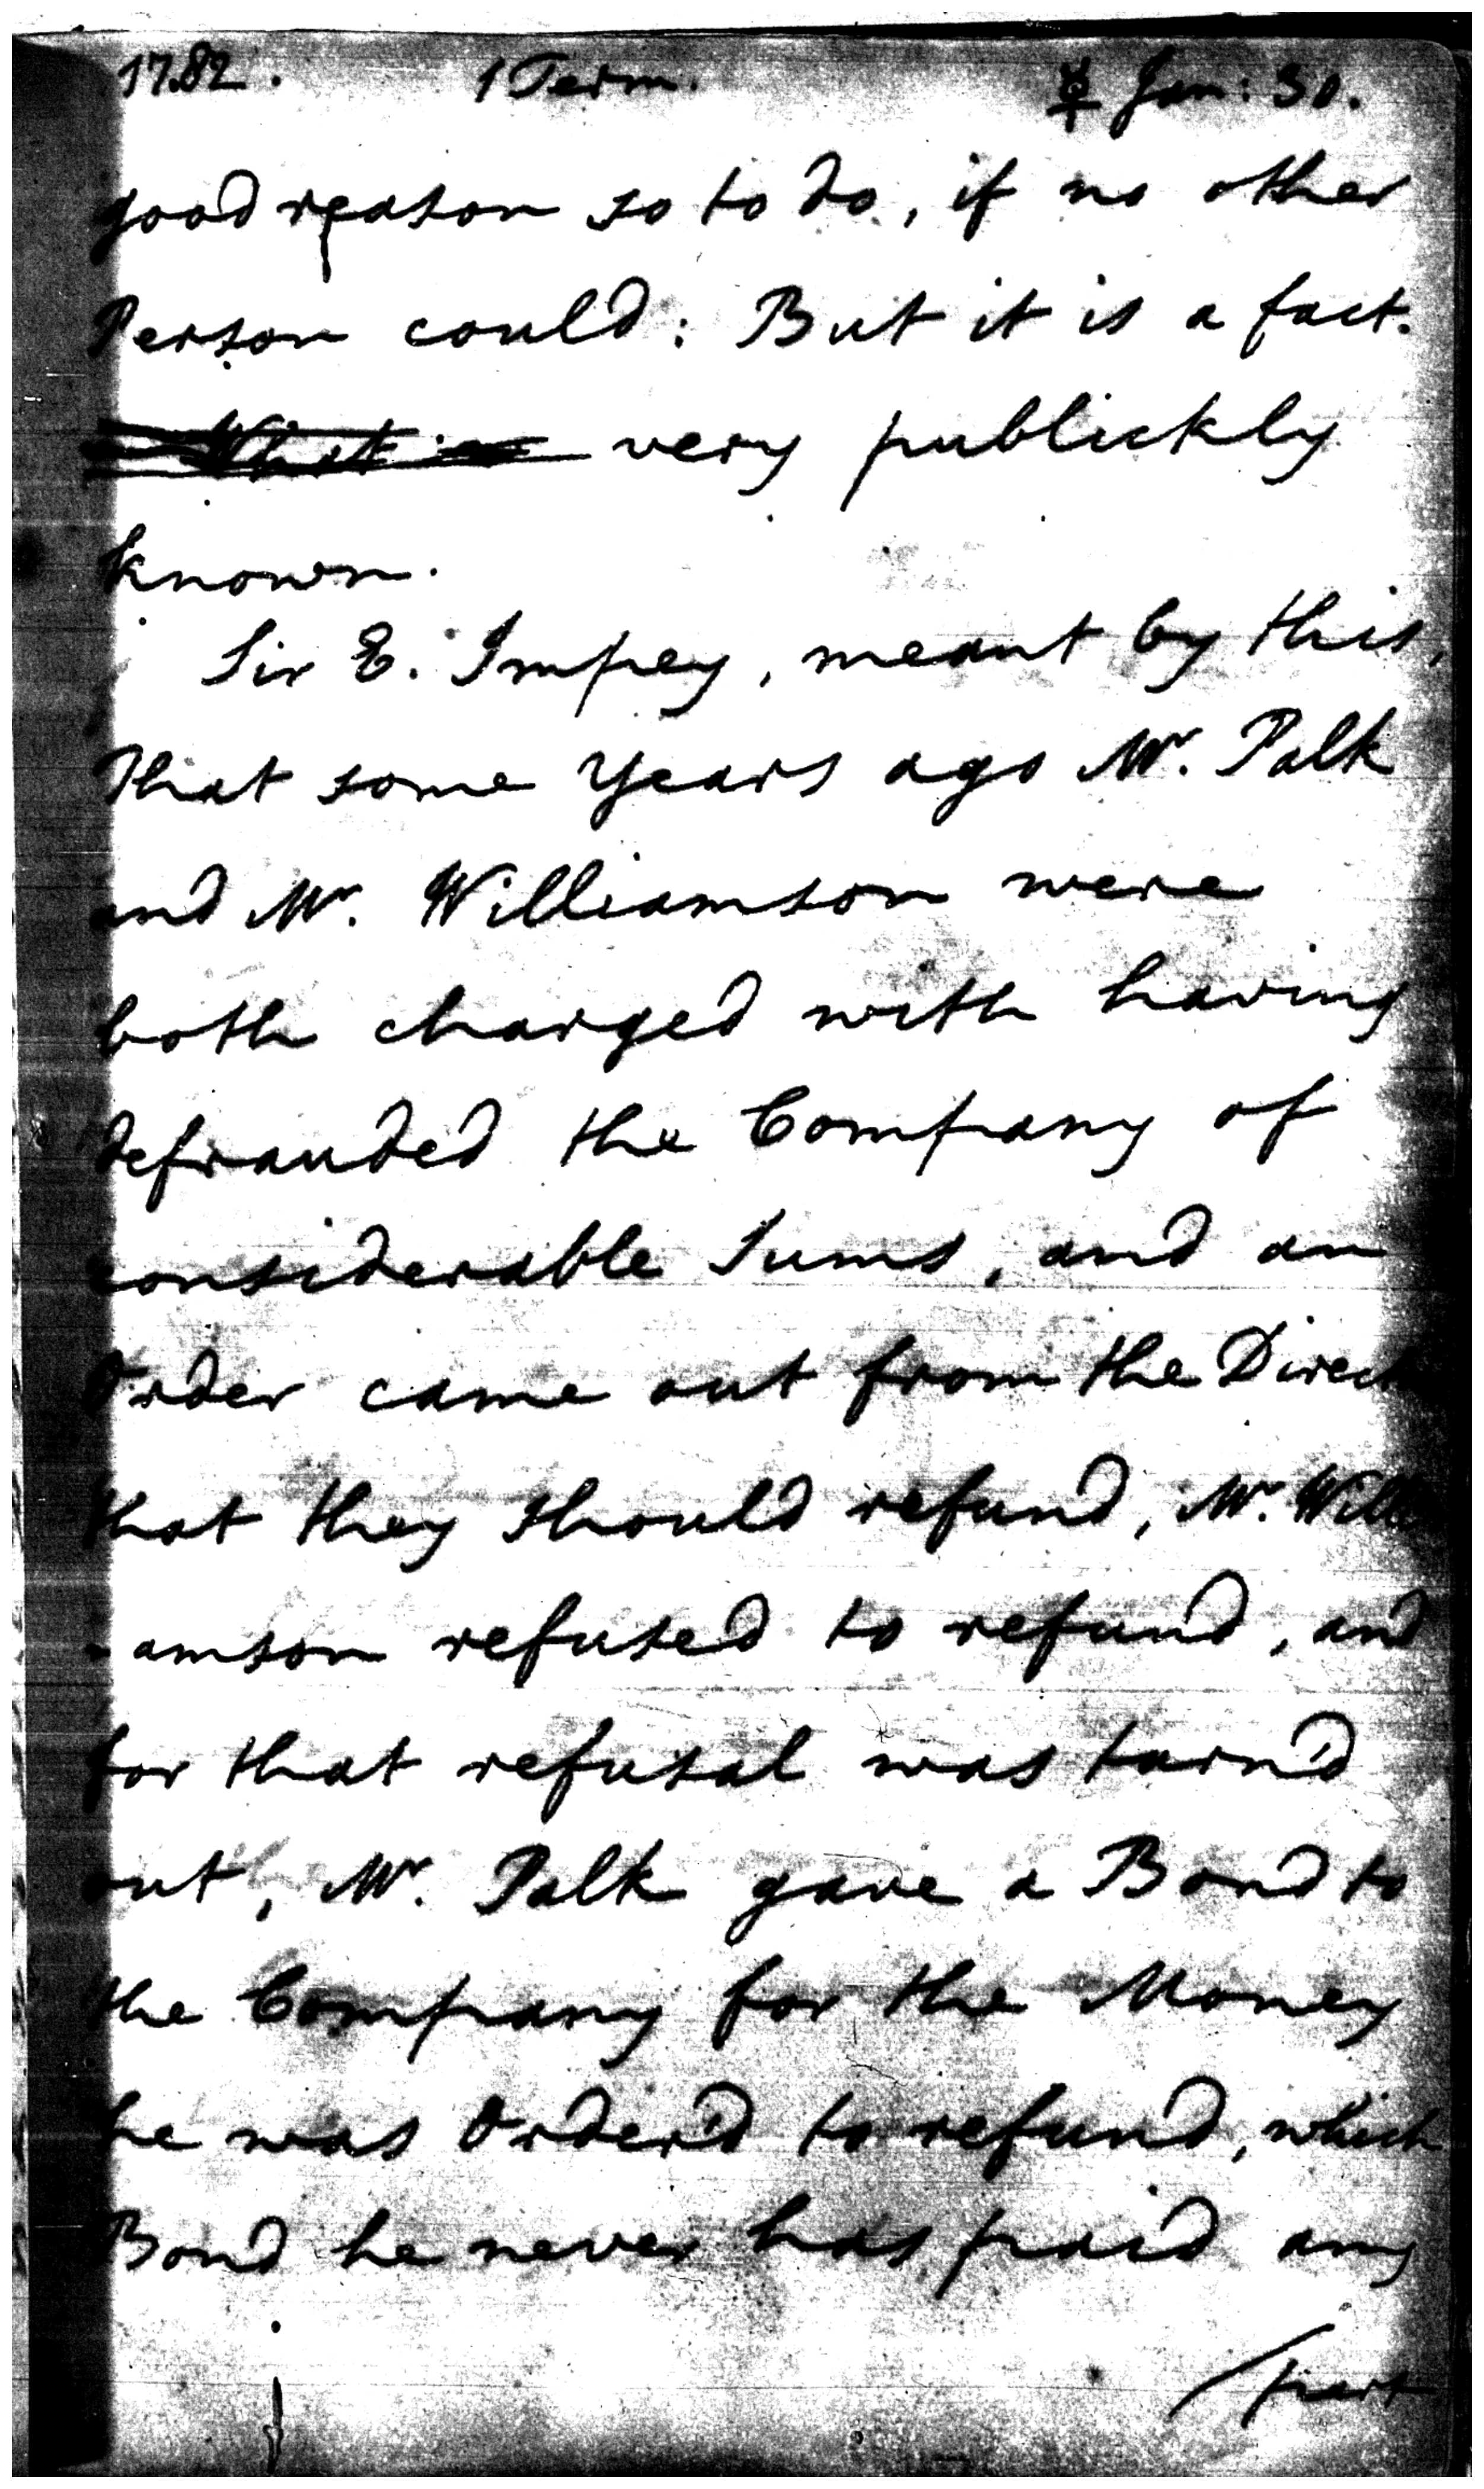 1782. 1 Term. ☿ Jan: 30.
good reason so to do, if no other
Person could: But it is a fact.
What is very publickly
known.
Sir E. Impey, meant by this,
That some Years ago Mr. Palk
and Mr. Williamson were
both charged with having
defrauded the Company of
considerable Sums, and an
Order came out from the Direct
that they should refund, Mr. Willi
-amson refused to refund, and
for that refusal was turn'd
out, Mr. Palk gave a Bond to
the Company for the Money
he was Order'd to refund, which
Bond he never has paid any
/part